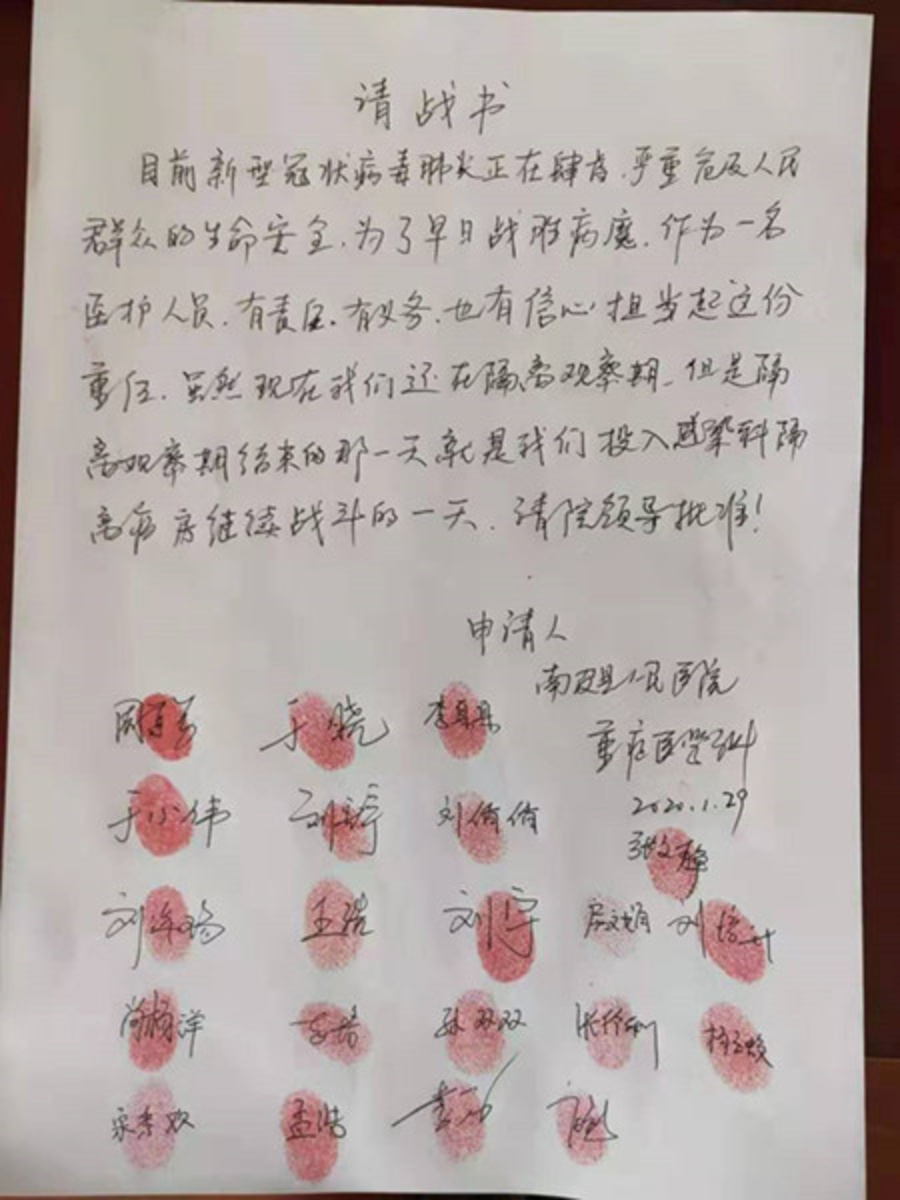 请战书
目前新型冠状病毒肺炎正在肆虐,严重危及人民
群众的生命安全,为了早日战胜病魔,作为一名
医护人员,有责任,有义务,也有信心担当起这份
重任,虽然现在我们还在隔离观察期,但是隔
离观察期结束的那一天就是我们投入感染科隔
离病房继续战斗的一天,请院领导批准!
申请人
南皮县人民医院
重症医学科
2020.1.29
于晓
于小伟
刘婷
刘俏俏
王浩
刘宇
尚杨洋
孙双双
孟浩